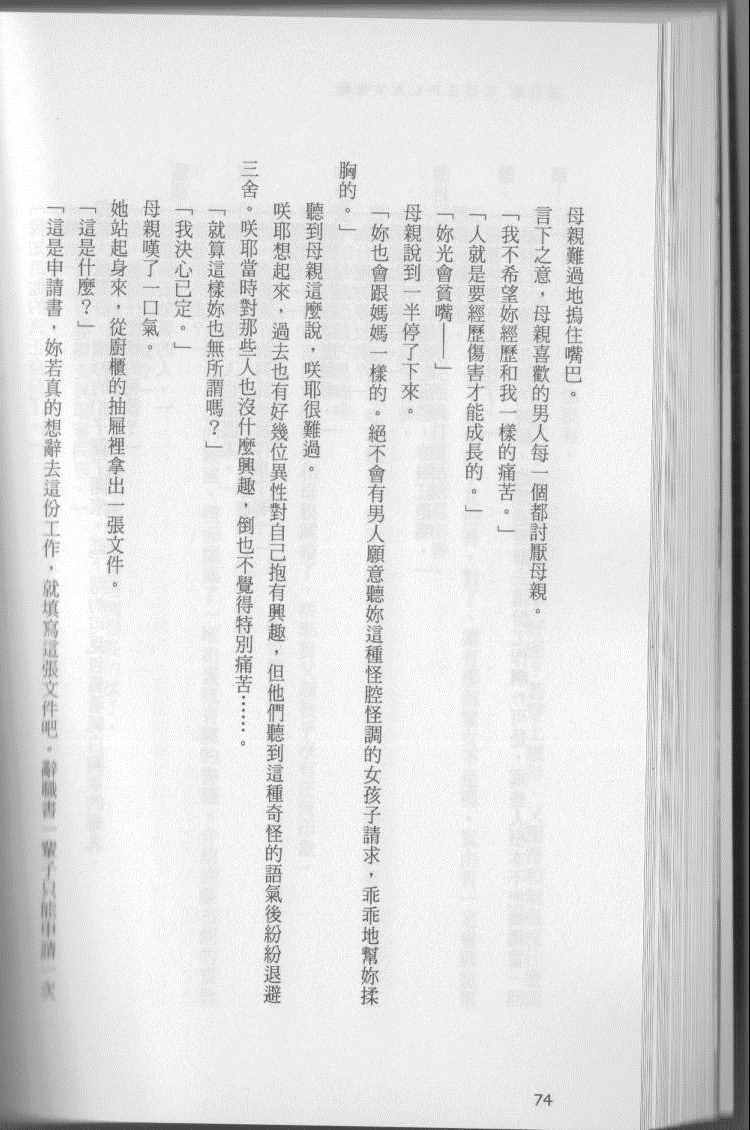 母親難過地搗住嘴巴。
言下之意，母親喜歡的男人每一個都討厭母親。
「我不希望妳經歷和我一樣的痛苦。」
「人就是要經歷傷害才能成長的。」
「妳光會貧嘴——」
母親說到一半停了下來。
「妳也會跟媽媽一樣的。絕不會有男人願意聽妳這種怪腔怪調的女孩子請求，乖乖地幫妳揉
胸的。」
聽到母親這麼說，咲耶很難過。
咲耶想起來，過去也有好幾位異性對自己抱有興趣，但他們聽到這種奇怪的語氣後紛紛退避
三舍。咲耶當時對那些人也沒什麼興趣，倒也不覺得特別痛苦……。
「就算這樣妳也無所謂嗎？」
「我決心已定。」
母親嘆了一口氣。
她站起身來，從廚櫃的抽屜裡拿出一張文件。
「這是什麼？」
「這是申請書，妳若真的想辭去這份工作，就填寫這張文件吧。辭職書一輩子只能申請一次
74